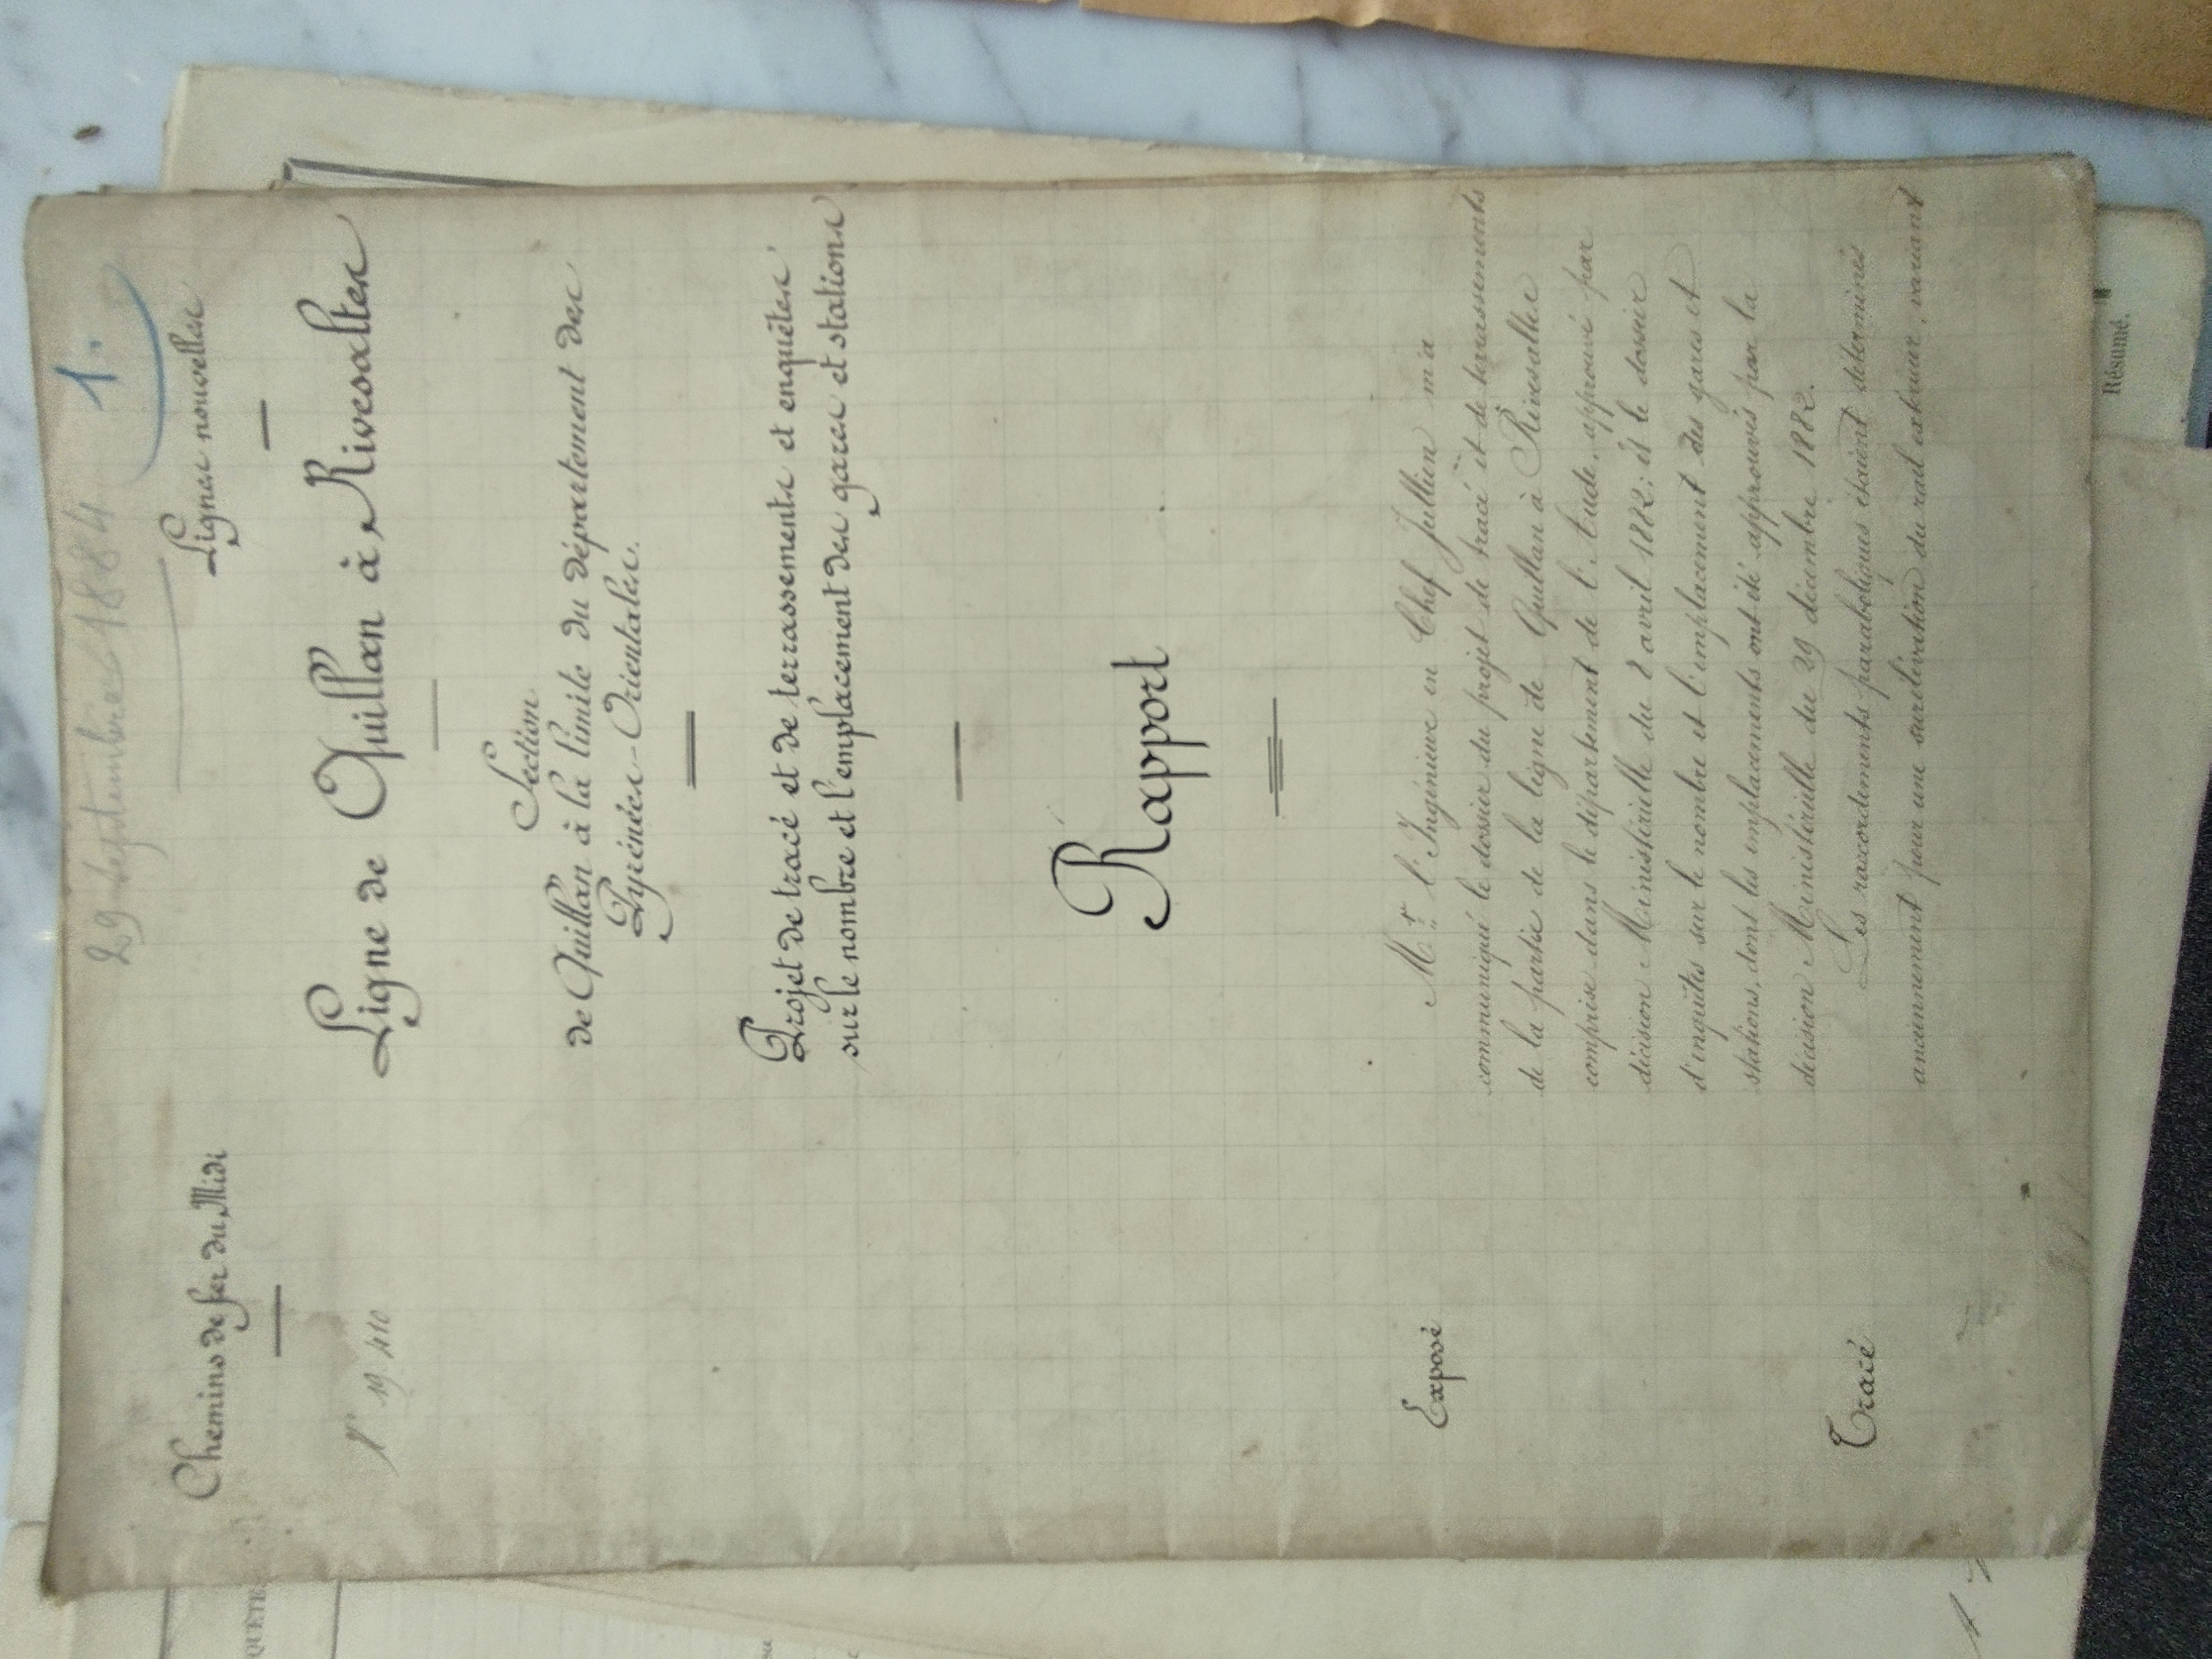 29 septembre 1884
1.
Chemins de fer du Midi
Lignes nouvelles
QUÊTE
N° 19.410
Ligne de Quillan à Rivesaltes
Section
de Quillan à la limite du département des
Pyrénées-Orientales.
Projet de tracé et de terrassements et enquêtes
sur le nombre et l'emplacement des gares et stations
Rapport
Exposé
Mr. l'Ingénieur en Chef Jullien m'a
communiqué le dossier du projet de tracé et de terrassements
de la partie de la ligne de Quillan à Rivesaltes
comprise dans le département de l'Aude, approuvé par
décision Ministérielle du 8 avril 1882; et le dossier
d'enquêtes sur le nombre et l'emplacement des gares et
stations, dont les emplacements ont été approuvés par la
décision Ministérielle du 29 décembre 1882.
Tracé
Les raccordements paraboliques étaient déterminés
anciennement pour une surélévation du rail extérieur, variant
Résumé.